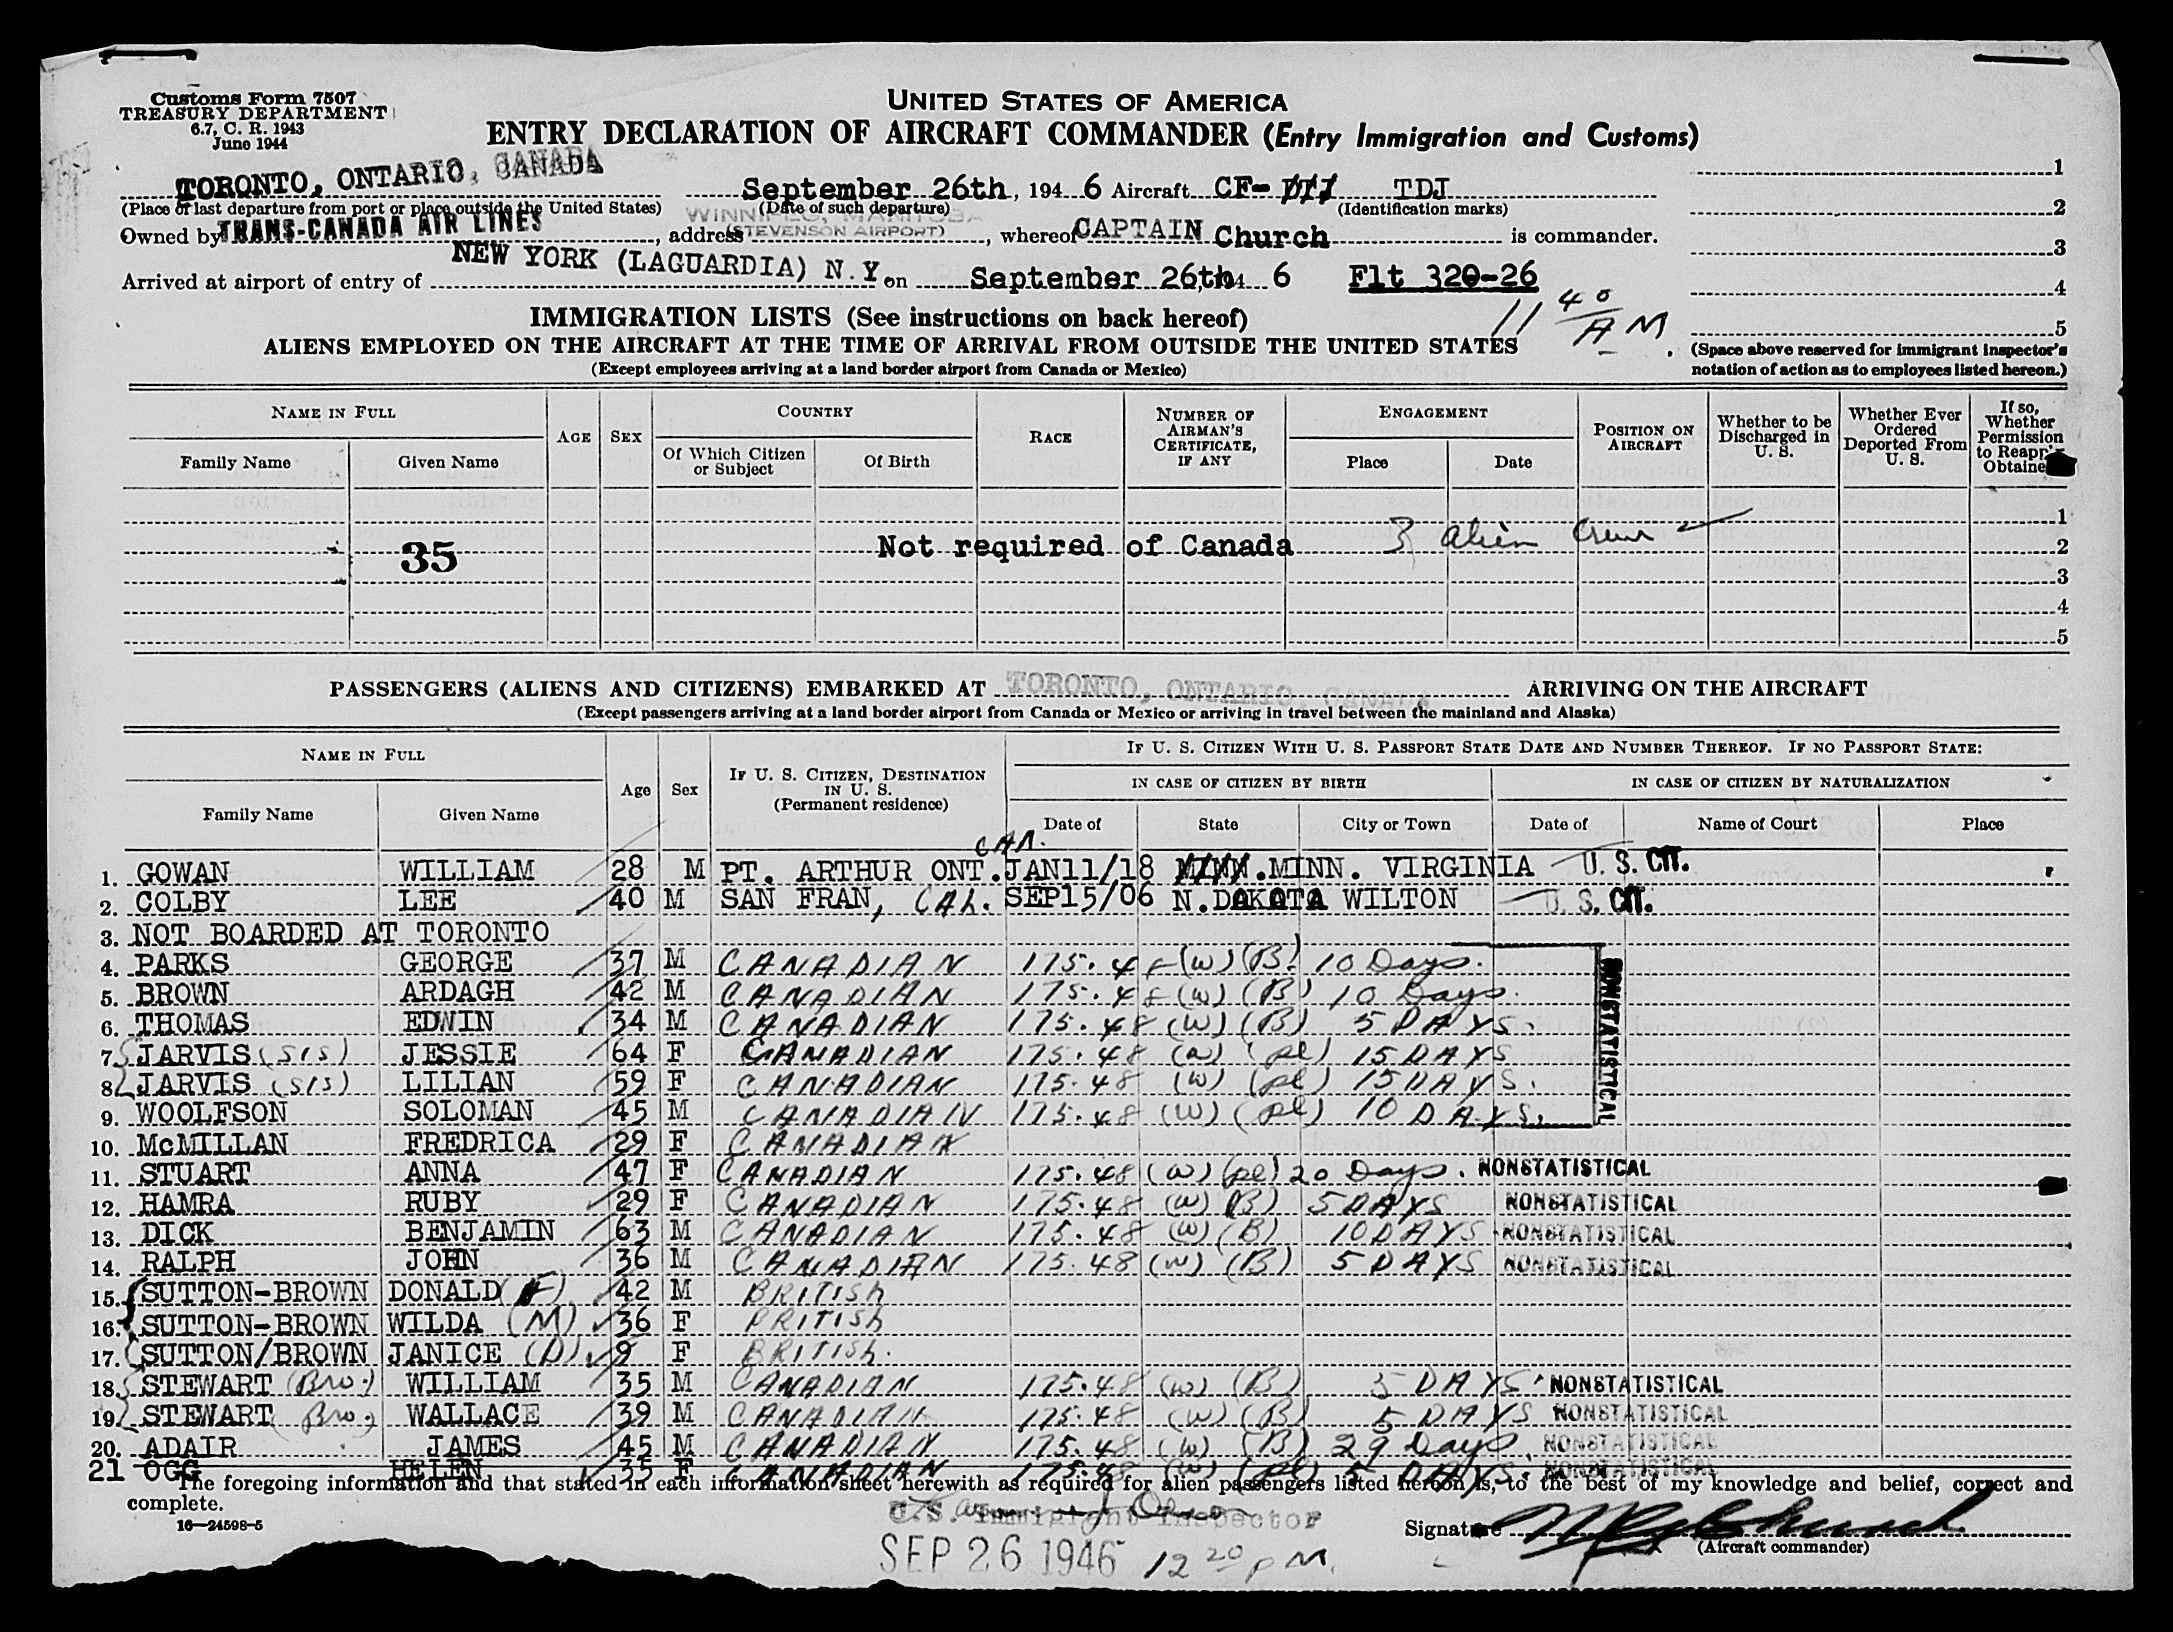 Customs Form 7507
TREASURY DEPARTMENT
6.7, C. R. 1943
June 1944
UNITED STATES OF AMERICA
ENTRY DECLARATION OF AIRCRAFT COMMANDER (Entry Immigration and Customs)
TORONTO, ONTARIO, CANADA September 26th, 194 6 Aircraft CF- TDJ
(Place of last departure from port or place outside the United States) (Date of such departure) (Identification marks)
WINNIPEG, MANITOBA
Owned by TRANS-CANADA AIR LINES, address (STEVENSON AIRPORT), whereof CAPTAIN Church is commander.
Arrived at airport of entry of NEW YORK (LAGUARDIA) N.Y. on September 26th, 194 6 Flt 320-26
11 40 AM
1
2
3
4
5
(Space above reserved for immigrant inspector's notation of action as to employees listed hereon.)
IMMIGRATION LISTS (See instructions on back hereof)
ALIENS EMPLOYED ON THE AIRCRAFT AT THE TIME OF ARRIVAL FROM OUTSIDE THE UNITED STATES
(Except employees arriving at a land border airport from Canada or Mexico)
NAME IN FULL AGE SEX COUNTRY RACE NUMBER OF AIRMAN'S CERTIFICATE, IF ANY ENGAGEMENT POSITION ON AIRCRAFT Whether to be Discharged in U. S. Whether Ever Ordered Deported From U. S. If so, Whether Permission to Reapply Obtained
Family Name Given Name Of Which Citizen or Subject Of Birth Place Date
1
35 Not required of Canada 3 alien crew 2
3
4
5
PASSENGERS (ALIENS AND CITIZENS) EMBARKED AT TORONTO, ONTARIO, CANADA ARRIVING ON THE AIRCRAFT
(Except passengers arriving at a land border airport from Canada or Mexico or arriving in travel between the mainland and Alaska)
NAME IN FULL Age Sex IF U. S. CITIZEN, DESTINATION IN U. S. (Permanent residence) IF U. S. CITIZEN WITH U. S. PASSPORT STATE DATE AND NUMBER THEREOF. IF NO PASSPORT STATE:
IN CASE OF CITIZEN BY BIRTH IN CASE OF CITIZEN BY NATURALIZATION
Family Name Given Name Date of State City or Town Date of Name of Court Place
1. GOWAN WILLIAM 28 M PT. ARTHUR ONT. CAN. JAN11/18 MINN. VIRGINIA U. S. CIT.
2. COLBY LEE 40 M SAN FRAN, CAL. SEP15/06 N.DAKOTA WILTON U. S. CIT.
3. NOT BOARDED AT TORONTO
4. PARKS GEORGE 37 M CANADIAN 175.48 (W) (B) 10 Days.
5. BROWN ARDAGH 42 M CANADIAN 175.48 (W) (B) 10 Days.
6. THOMAS EDWIN 34 M CANADIAN 175.48 (W) (B) 5 DAYS.
7. JARVIS (SIS) JESSIE 64 F CANADIAN 175.48 (W) (pl) 15 DAYS
8. JARVIS (SIS) LILIAN 59 F CANADIAN 175.48 (W) (pl) 15 DAYS.
9. WOOLFSON SOLOMAN 45 M CANADIAN 175.48 (W) (pl) 10 DAYS.
NONSTATISTICAL
10. McMILLAN FREDRICA 29 F CANADIAN
11. STUART ANNA 47 F CANADIAN 175.48 (W) (pl) 20 Days. NONSTATISTICAL
12. HAMRA RUBY 29 F CANADIAN 175.48 (W) (B) 5 DAYS NONSTATISTICAL
13. DICK BENJAMIN 63 M CANADIAN 175.48 (W) (B) 10 DAYS NONSTATISTICAL
14. RALPH JOHN 36 M CANADIAN 175.48 (W) (B) 5 DAYS NONSTATISTICAL
15. SUTTON-BROWN DONALD (F) 42 M BRITISH
16. SUTTON-BROWN WILDA (M) 36 F BRITISH
17. SUTTON/BROWN JANICE (D) 9 F BRITISH.
18. STEWART (Bro.) WILLIAM 35 M CANADIAN 175.48 (W) (B) 5 DAYS NONSTATISTICAL
19. STEWART (Bro.) WALLACE 39 M CANADIAN 175.48 (W) (B) 5 DAYS NONSTATISTICAL
20. ADAIR JAMES 45 M CANADIAN 175.48 (W) (B) 29 Days. NONSTATISTICAL
21 OGG HELEN 35 F CANADIAN 175.48 (W) (pl) 5 DAYS. NONSTATISTICAL
The foregoing information and that stated in each information sheet herewith as required for alien passengers listed hereon is, to the best of my knowledge and belief, correct and
complete.
16—24598-5
U.S. Immigrant Inspector
Signature
(Aircraft commander)
SEP 26 1946 12 20 PM.